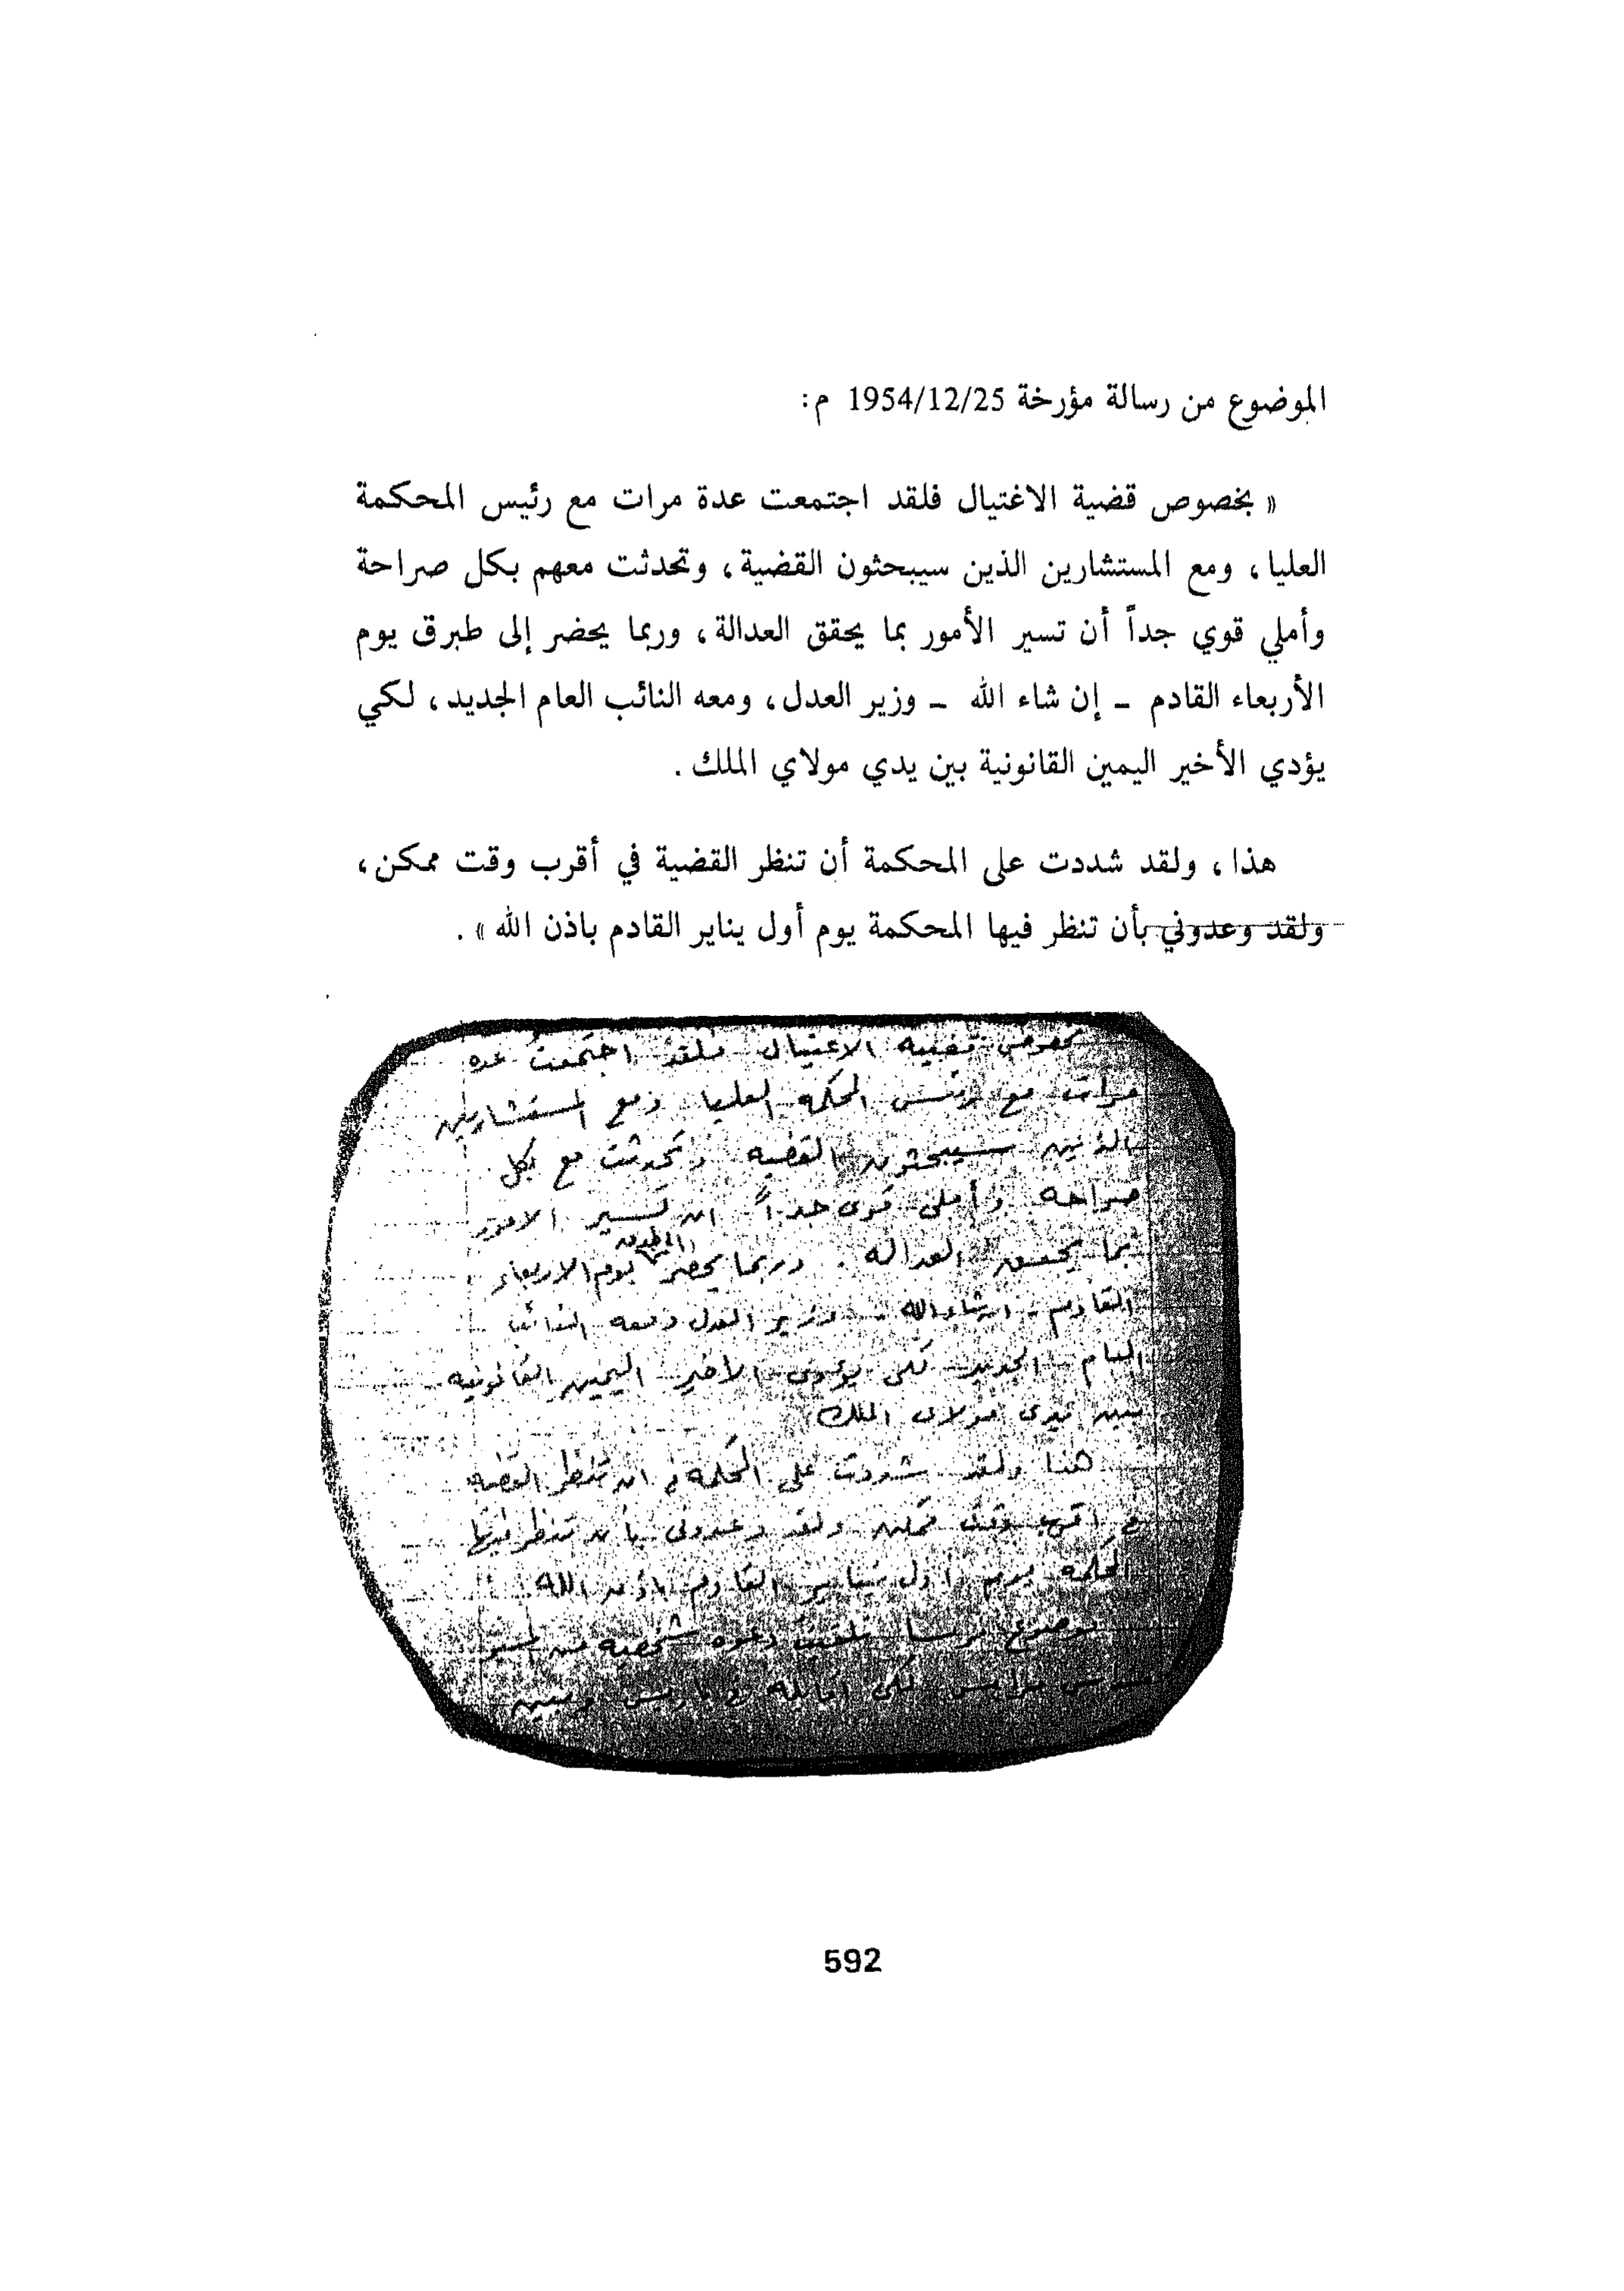 الموضوع من رسالة مؤرخة 1954/12/25 م:
« بخصوص قضية الاغتيال فلقد اجتمعت عدة مرات مع رئيس المحكمة
العليا، ومع المستشارين الذين سيبحثون القضية، وتحدثت معهم بكل صراحة
وأملي قوي جداً أن تسير الأمور بما يحقق العدالة، وربما يحضر إلى طبرق يوم
الأربعاء القادم - إن شاء الله - وزير العدل، ومعه النائب العام الجديد، لكي
يؤدي الأخير اليمين القانونية بين يدي مولاي الملك.
هذا، ولقد شددت على المحكمة أن تنظر القضية في أقرب وقت ممكن،
ولقد وعدوني بأن تنظر فيها المحكمة يوم أول يناير القادم باذن الله ».
بخصوص قضيه الاغتيال فلقد اجتمعت عده
مرات مع رئيس المحكمه العليا ومع المستشارين
الذين سيبحثون القضيه وتحدثت مع بكل
صراحه وأملى قوى جداً ان تسير الامور
بما يحقق العداله. وربما يحضر يوم الاربعاء
القادم - ان شاء الله - وزير العدل ومعه النائب
العام الجديد لكى يؤدى الاخير اليمين القانونيه
بين يدى مولاى الملك
هذا ولقد شددت على المحكمه ان تنظر القضيه
فى اقرب وقت ممكن ولقد وعدونى بأن تنظر فيها
المحكمه يوم اول يناير القادم باذن الله
موضوع فرنسا تلقيت دعوه شخصيه من
لكى اقابله فى باريس
592